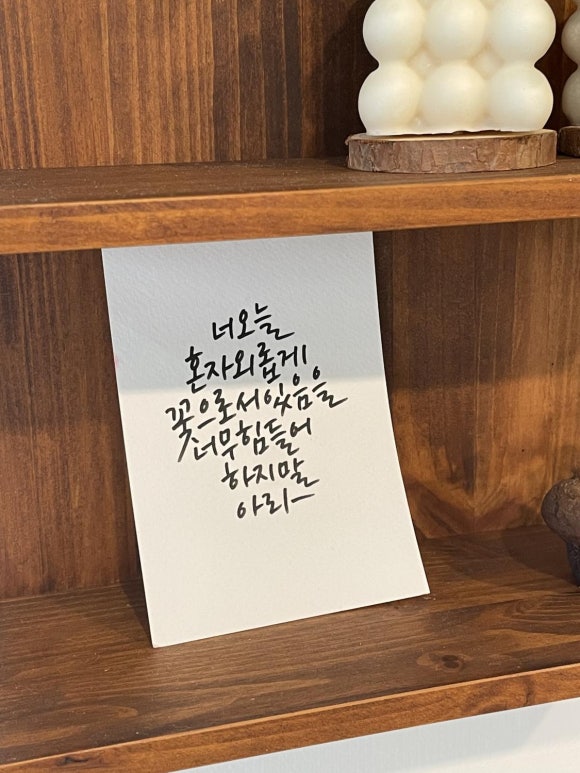 너오늘
혼자외롭게
꽃으로서있음을
너무힘들어
하지말
아리